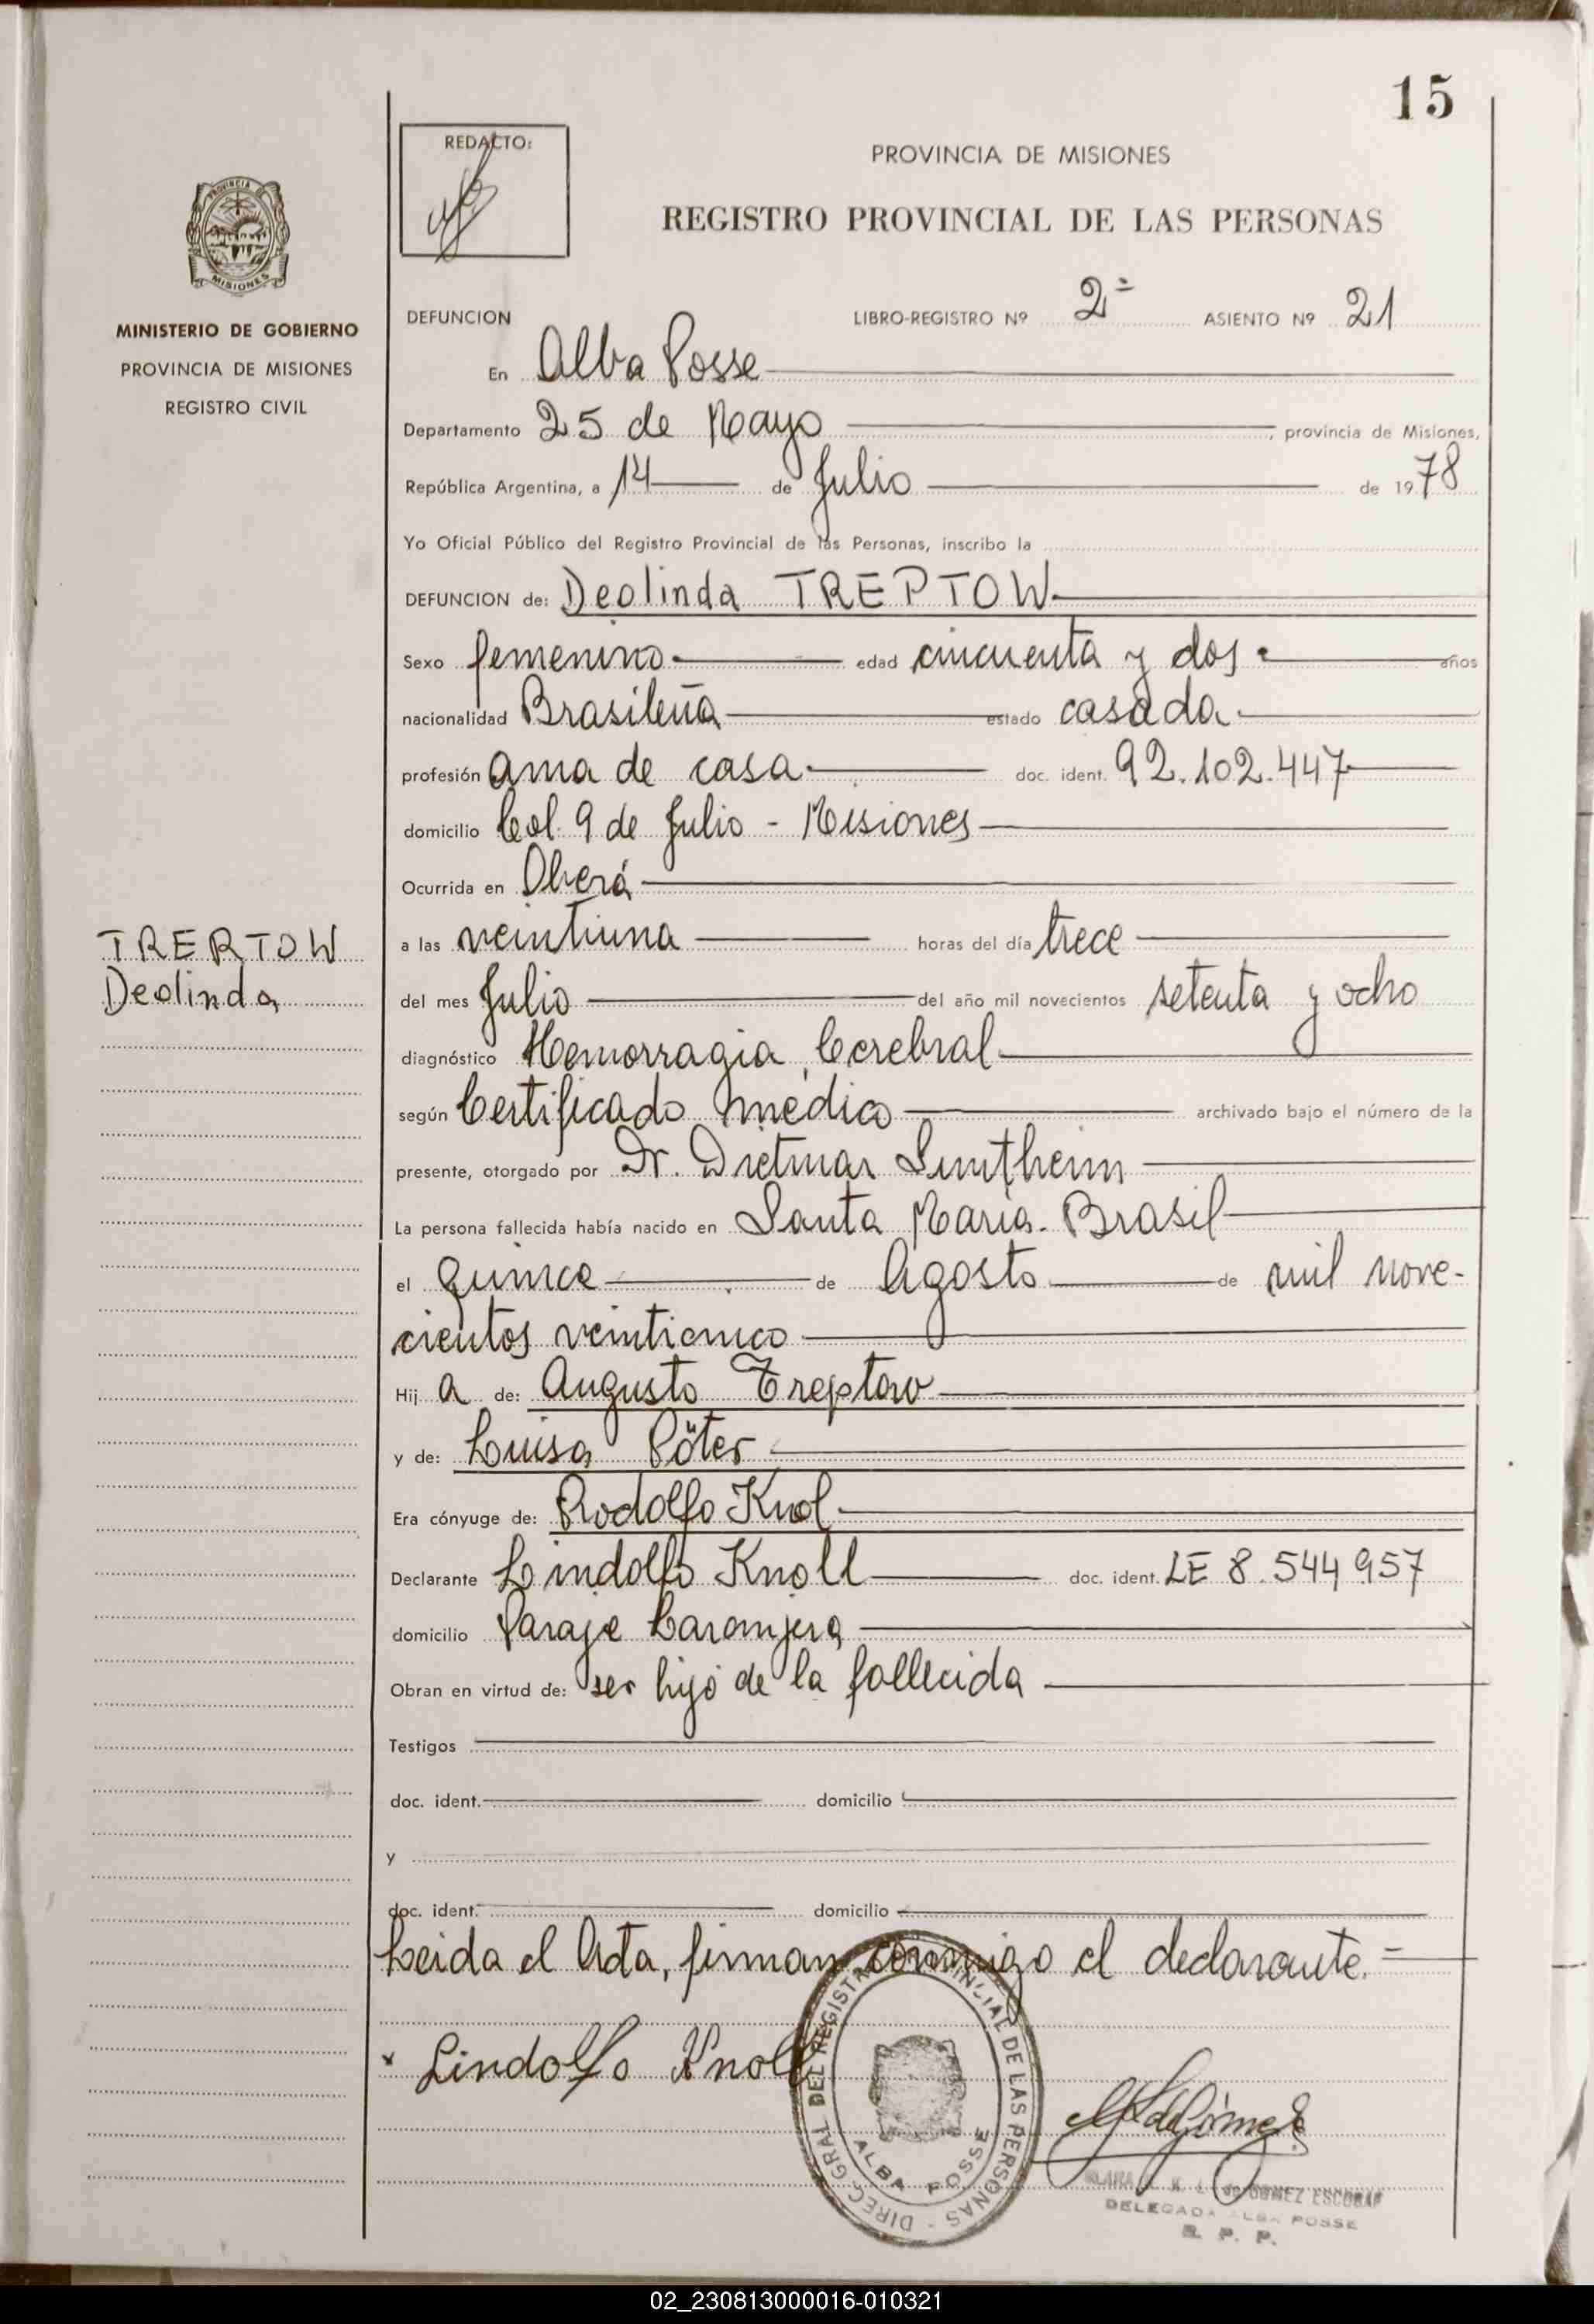 15
REDACTO:
PROVINCIA DE MISIONES
REGISTRO PROVINCIAL DE LAS PERSONAS
PROVINCIA DE
MISIONES
MINISTERIO DE GOBIERNO
PROVINCIA DE MISIONES
REGISTRO CIVIL
DEFUNCION LIBRO-REGISTRO Nº 2º ASIENTO Nº 21
En Alba Posse
Departamento 25 de Mayo, provincia de Misiones,
República Argentina, a 14 de Julio de 1978
Yo Oficial Público del Registro Provincial de las Personas, inscribo la
DEFUNCION de: Deolinda TREPTOW
Sexo femenino edad cincuenta y dos años
nacionalidad Brasileña estado casada
profesión ama de casa doc. ident. 92.102.447
domicilio Col. 9 de Julio - Misiones
Ocurrida en Oberá
TRERTOW
Deolinda
a las veintiuna horas del día trece
del mes Julio del año mil novecientos setenta y ocho
diagnóstico Hemorragia Cerebral
según Certificado médico archivado bajo el número de la
presente, otorgado por Dr. Dietmar
La persona fallecida había nacido en Santa María - Brasil
el quince de Agosto de mil nove-
cientos veinticinco
Hija de: Augusto Treptow
y de: Luisa Pöter
Era cónyuge de: Rodolfo Knol
Declarante Lindolfo Knoll doc. ident. LE 8.544957
domicilio Paraje Laranjera
Obran en virtud de: ser hijo de la fallecida
Testigos
doc. ident. domicilio
y
doc. ident. domicilio
Leida el Acta, firman conmigo el declarante.=
Lindolfo Knoll
DIREC. GRAL DEL REGISTRO PROVINCIAL DE LAS PERSONAS
ALBA POSSE
de Gómez E.
de GOMEZ ESCOBAR
DELEGADA ALBA POSSE
R. P. P.
02_230813000016-010321